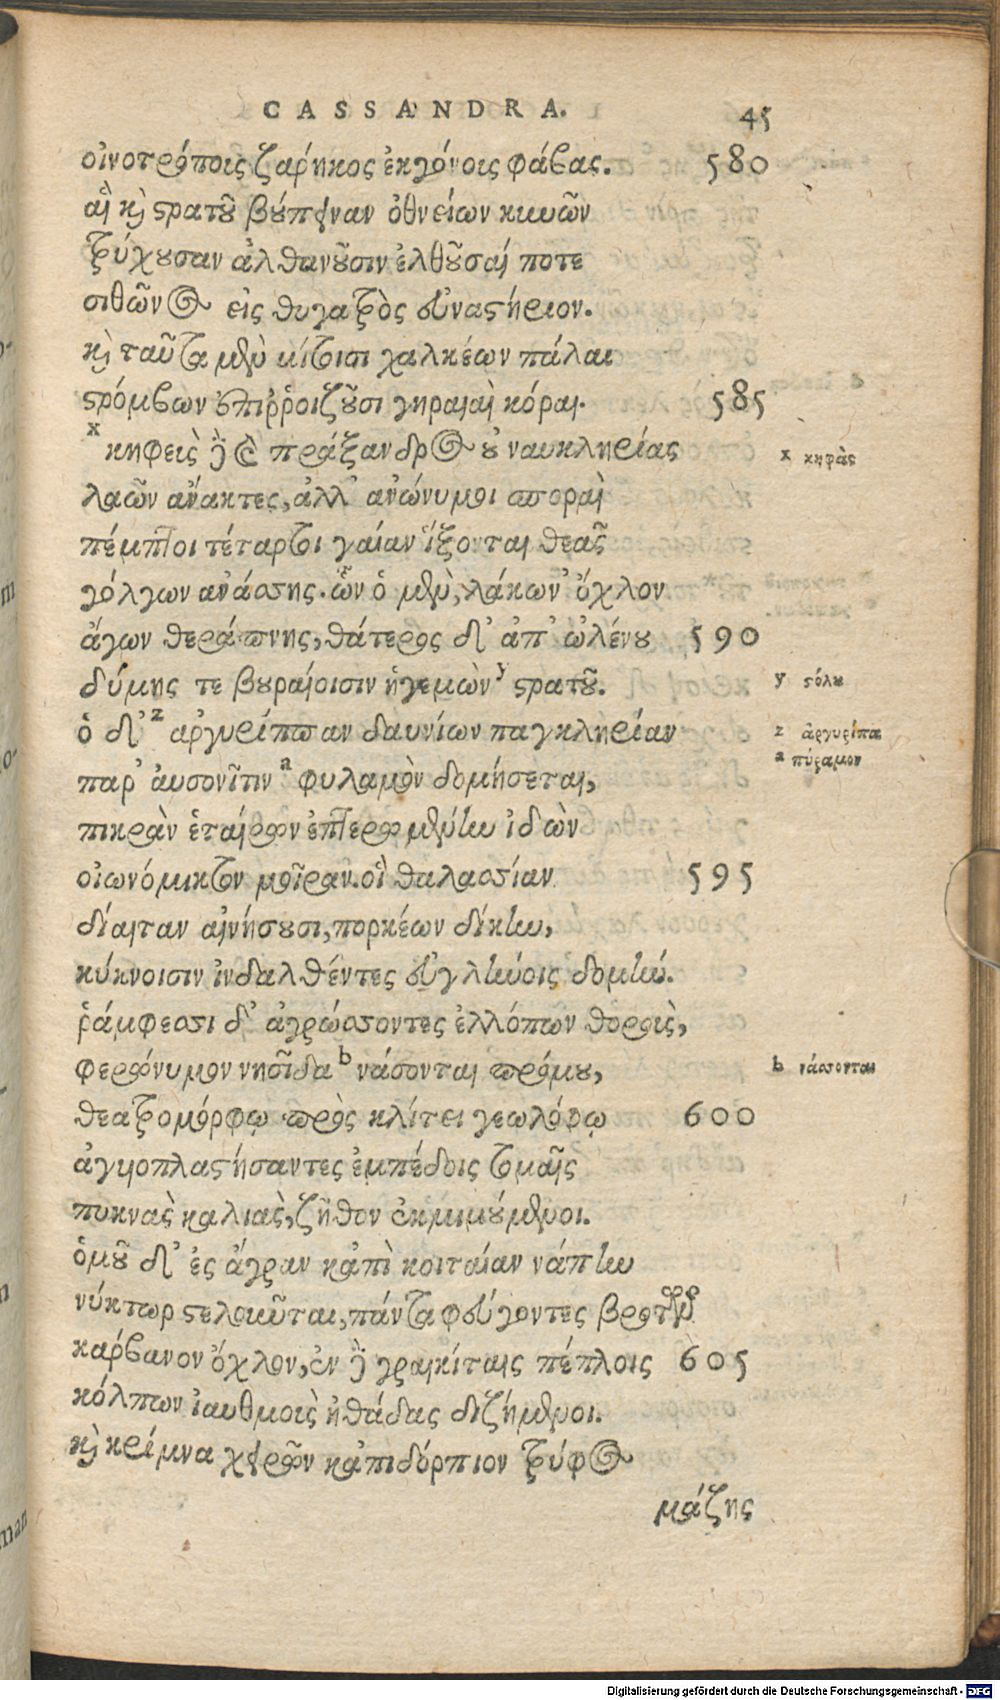 CASSANDRA. 45
οἰνοτρόποις ζαρήκος ἐκγόνοις φάβας. 580
αἳ καὶ στρατοῦ βούπειναν ὀθνείων κυνῶν
τρύχουσαν ἀλθανοῦσιν ἐλθοῦσαί ποτε
σιθῶνος εἰς θυγατρὸς εὐναστήριον.
καὶ ταῦτα μὲν μίτοισι χαλκέων πάλαι
στρόμβων ἐπιῤῥοιζοῦσι γηραιαὶ κόραι. 585
x κηφεὺς δὲ καὶ πράξανδρος οὐ ναυκληρίας x κηφὰς
λαῶν ἄνακτες, ἀλλ' ἀνώνυμοι σποραὶ
πέμπτοι τέταρτοι γαίαν ἵξονται θεᾶς
γόλγων ἀνάσσης. ὧν ὁ μὲν, λάκων' ὄχλον
ἄγων θεράπνης, θάτερος δ' ἀπ' ὠλένου 590
δύμης τε βουραίοισιν ἡγεμὼν y στρατοῦ. y στόλου
ὁ δ' z ἀργυρίππαν δαυνίων παγκληρίαν z ἀργυρίπα
παρ' αὐσονῖτιν a φυλαμὸν δομήσεται, a πύραμον
πικρὰν ἑταίρων ἐπτερωμένην ἰδὼν
οἰωνόμικτον μοῖραν. οἳ θαλασσίαν 595
δίαιταν αἰνήσουσι, πορκέων δίκην,
κύκνοισιν ἰνδαλθέντες εὐγλήνοις δομήν.
ῥάμφεσσι δ' ἀγρώσσοντες ἐλλόπων θορούς,
φερώνυμον νησῖδα b νάσονται πρόμου, b νάσσονται
θεατρομόρφῳ πρὸς κλίτει γεωλόφῳ 600
ἀγυιοπλαστήσαντες ἐμπέδοις τομαῖς
πυκνὰς καλιὰς, ζῆθον ἐκμιμούμενοι.
ὁμοῦ δ' ἐς ἄγραν κἀπὶ κοιταίαν νάπην
νύκτωρ στελοῦνται, πάντα φεύγοντες βροτῶν
κάρβανον ὄχλον, ἐν δὲ γραικίταις πέπλοις 605
κόλπων ἰαυθμοὺς ἠθάδας διζήμενοι.
καὶ κρίμνα χειρῶν κἀπιδόρπιον τρύφος
μάζης
Digitalisierung gefördert durch die Deutsche Forschungsgemeinschaft - DFG